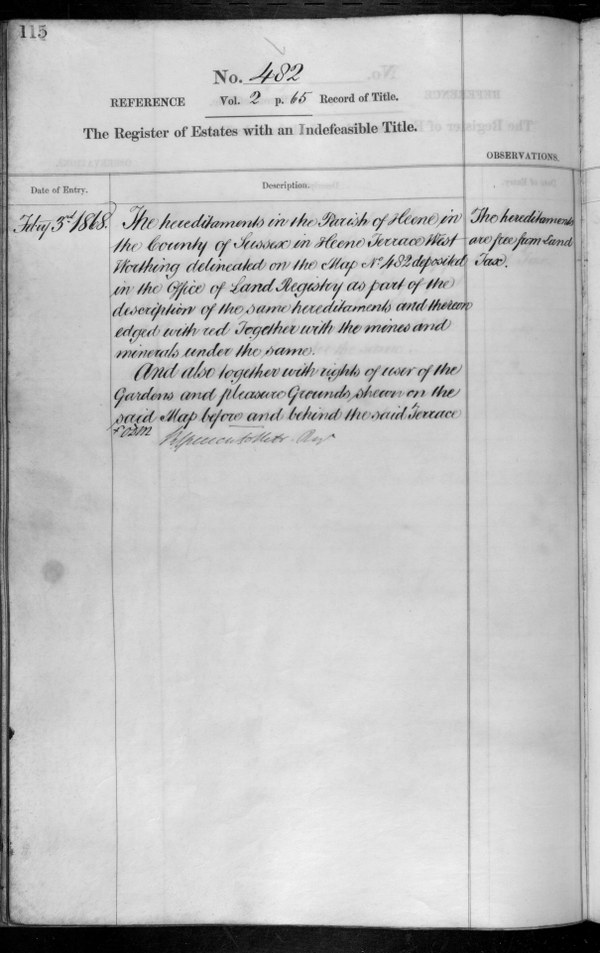 115
No. 482
REFERENCE Vol. 2 p. 65 Record of Title.
The Register of Estates with an Indefeasible Title.
OBSERVATIONS.
Date of Entry.
Description.
Feby 3rd 1868.
The hereditaments in the Parish of Heene in
the County of Sussex in Heene Terrace West
Worthing delineated on the Map No 482 deposited
in the Office of Land Registry as part of the
description of the same hereditaments and thereon
edged with red Together with the mines and
minerals under the same.
And also together with rights of user of the
Gardens and pleasure Grounds shewn on the
said Map before and behind the said Terrace
The hereditaments
are free from Land
Tax.